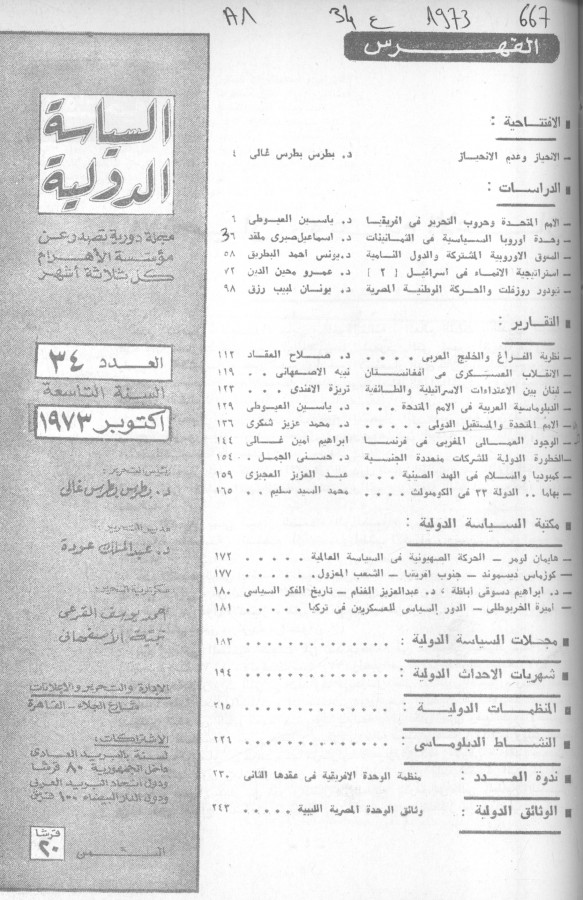 ٨٨ ٣٤ ع 1973 667
الفهرس
الافتتاحية :
– الانحياز وعدم الانحياز د. بطرس بطرس غالى ٤
الدراسات :
– الامم المتحدة وحروب التحرير فى افريقيا د. ياسين العيوطى ٦
– وحدة اوروبا السياسية فى الثمانينات د. اسماعيل صبرى مقلد ٣٦
– السوق الاوروبية المشتركة والدول النامية د. يونس احمد البطريق ٥٨
– استراتيجية الانماء فى اسرائيل [ ٢ ] د. عمرو محيى الدين ٧٢
– تيودور روزفلت والحركة الوطنية المصرية د. يونان لبيب رزق ٩٨
التقارير :
– نظرية الفراغ والخليج العربى . . . . د. صلاح العقاد ١١٢
– الانقلاب العسكرى فى افغانستان نبيه الاصفهانى . . ١١٩
– لبنان بين الاعتداءات الاسرائيلية والطائفية تريزة الافندى . . . ١٢٣
– الدبلوماسية العربية فى الامم المتحدة . . . د. ياسين العيوطى ١٢٩
– الامم المتحدة والمستقبل الدولى . . . . . د. محمد عزيز شكرى ١٣٦
– الوجود العمالى المغربى فى فرنسا ابراهيم امين غالى ١٤٤
– الخطورة الدولية للشركات متعددة الجنسية د. حسنى الجمل . . ١٥٤
– كمبوديا والسلام فى الهند الصينية . . . عبد العزيز العجيزى ١٥٩
– بهاما .. الدولة ٣٣ فى الكومنولث . . . . محمد السيد سليم . . ١٦٥
مكتبة السياسة الدولية :
– هايمان لومر – الحركة الصهيونية فى السياسة العالمية . . . . . ١٧٢
– كوزماس ديسموند – جنوب افريقيا – الشعب المعزول . . . . . ١٧٧
– د. ابراهيم دسوقى أباظة ، د. عبدالعزيز الغنام – تاريخ الفكر السياسى ١٨٠
– اميرة الخربوطلى – الدور السياسى للعسكريين فى تركيا . . . . ١٨١
مجلات السياسة الدولية : . . . . . . . . . . . . . . ١٨٣
شهريات الاحداث الدولية : . . . . . . . . . . . . . ١٩٤
المنظمات الدولية : . . . . . . . . . . . . . . ٢١٥
النشاط الدبلوماسى : . . . . . . . . . . . . . . ٢٢٦
ندوة العدد : منظمة الوحدة الافريقية فى عقدها الثانى ٢٣٠
الوثائق الدولية : وثائق الوحدة المصرية الليبية . . . . . ٢٤٣
السياسة
الدولية
مجلة دورية تصدر عن
مؤسسة الأهرام
كل ثلاثة أشهر
العدد ٣٤
السنة التاسعة
اكتوبر ١٩٧٣
رئيس التحرير
د. بطرس بطرس غالى
مدير التحرير
د. عبدالملك عودة
سكرتيرية التحرير
احمد يوسف القرعى
نبيه الأصفهانى
الإدارة والتحرير والإعلانات
شارع الجلاء - القاهرة
الاشتراكات:
لسنة بالبريد العادى
داخل الجمهورية ٨٠ قرشا
ودول اتحاد البريد العربى
ودول الدار البيضاء ١٠٠ قرش
الثمن ٢٠ قرشا